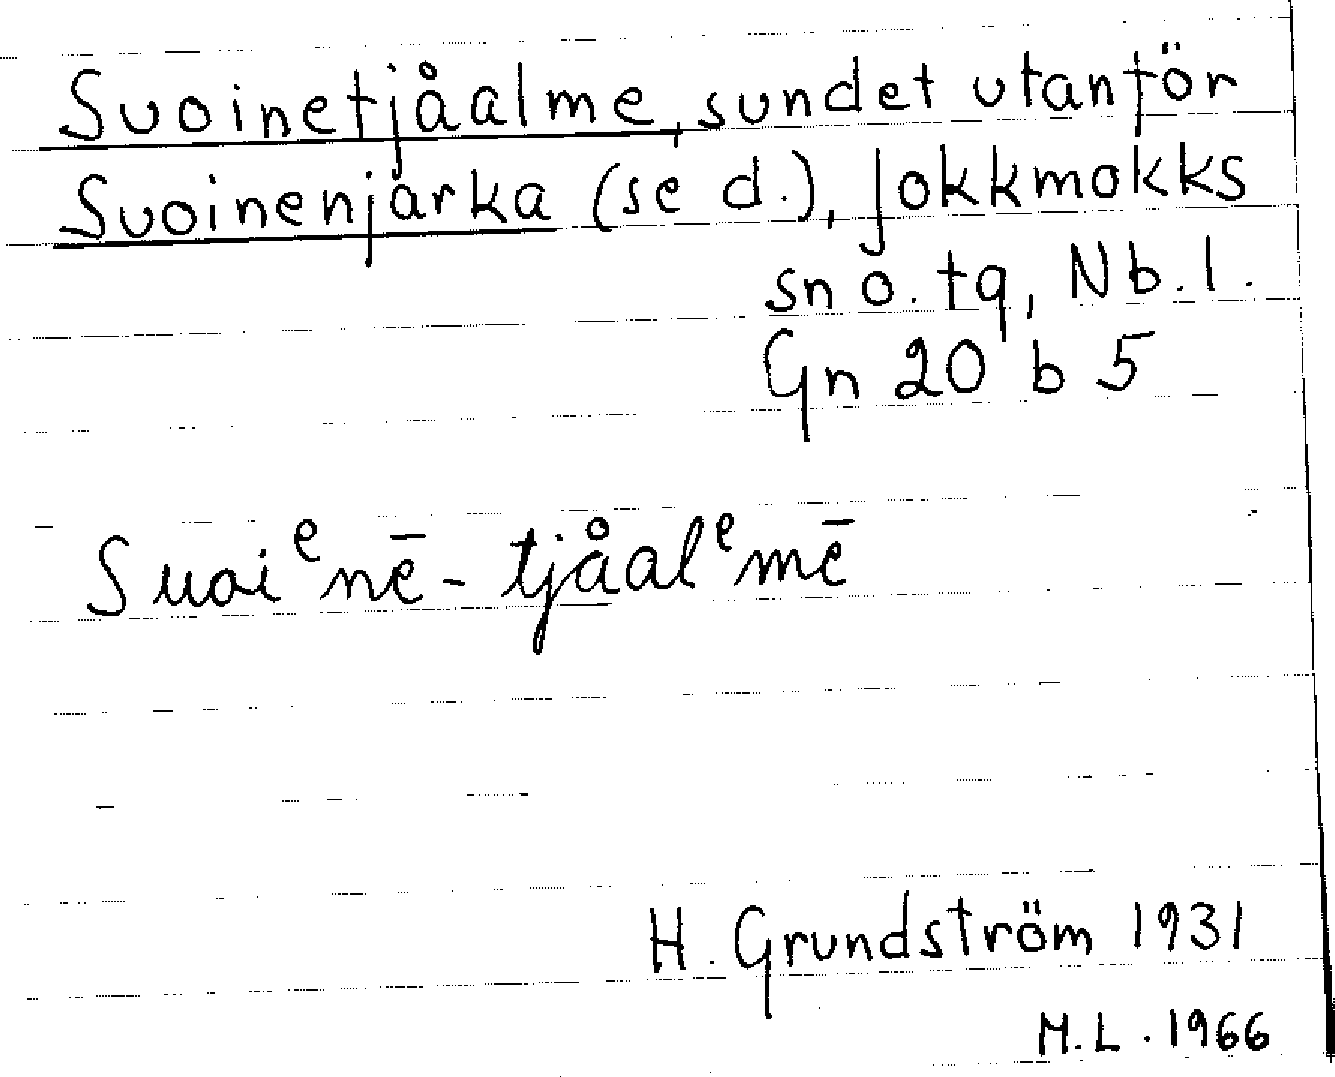 Suoinetjåalme, sundet utanför
Suoinenjarka (se d.), Jokkmokks
sn o. tg, Nb. l.
Gn 20 b 5
Suoiᵉnē-tjåalᵉmē
H. Grundström 1931
M.L. 1966